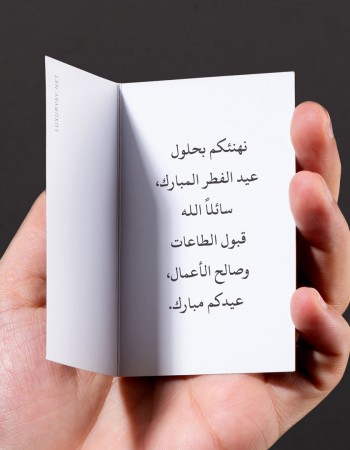 LUXURYBY.NET
نهنئكم بحلول
عيد الفطر المبارك،
سائلاً الله
قبول الطاعات
وصالح الأعمال،
عيدكم مبارك.